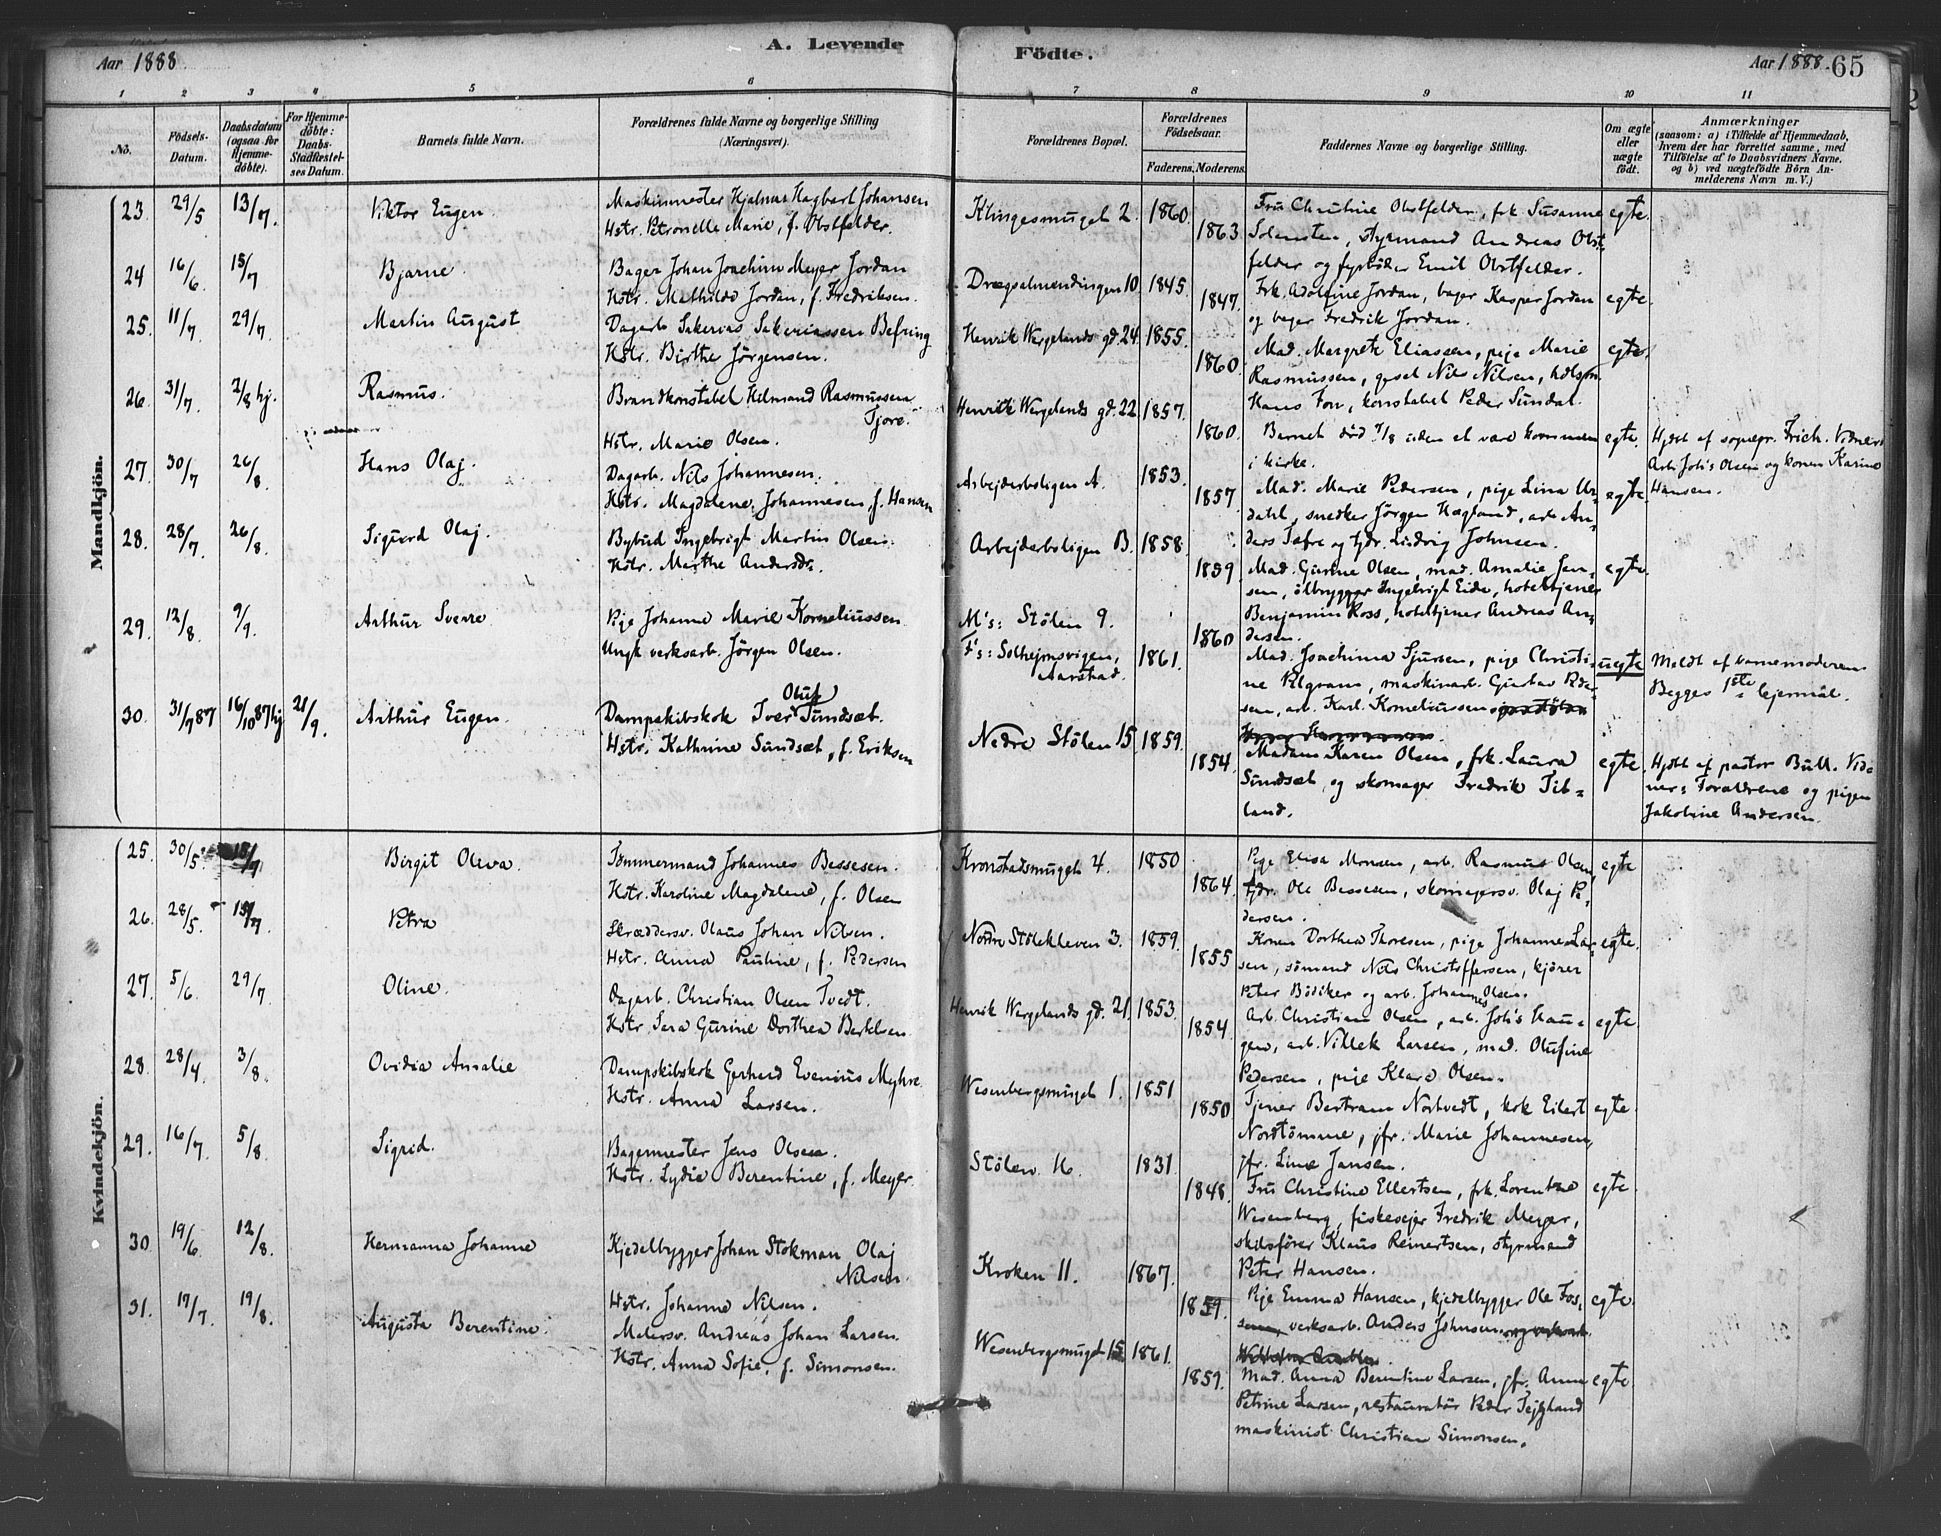 Aar 1888.
A. Levende
Födte.
Aar 1888.
65
1 2 3 4 5 6 7 8 9 10 11
No.
Födsels-
Datum.
Daabsdatum
(ogsaa for
Hjemme-
döbte).
For Hjemme-
döbte:
Daabs-
Stadfæstel-
ses Datum.
Barnets fulde Navn.
Forældrenes fulde Navne og borgerlige Stilling
(Næringsvei).
Forældrenes Bopæl.
Forældrenes
Födselsaar.
Faderens. Moderens.
Faddernes Navne og borgerlige Stilling.
Om ægte
eller
uægte
födt.
Anmærkninger
(saasom: a) i Tilfælde af Hjemmedaab,
hvem der har forrettet samme, med
Tilföielse af to Daabsvidners Navne,
og b) ved uægtefödte Börn An-
melderens Navn m. V.)
Mandkjön.
23. 29/5 13/7. Viktor Eugen.
Maskinmester Hjalmar Hagbart Johansen
Hstr. Petronelle Marie, f. Obstfelder.
Klingesmuget 2. 1860. 1863
Fru Christine Obstfelder, frk. Susanne
Solensten, styrmand Andreas Obst-
felder og fyrböder Emil Obstfelder.
egte.
24 16/6. 15/7 Bjarne.
Bager Johan Joachim Meyer Jordan
Hstr. Mathilde Jordan, f. Fredriksen.
Drægsalmendingen 10. 1845. 1847.
Frk. Adolfine Jordan, bager Kasper Jordan
og bager Fredrik Jordan.
egte.
25. 11/7. 29/7. Martin August
Dagarb. Sakarias Sakariassen Befring
Hstr. Birthe Jörgensen.
Henrik Wergelands gd. 24. 1855. 1860.
Mad. Margrete Eliassen, pige Marie
Rasmussen, gesel Nils Nilsen,
Hans Foss, konstabel Peder Sundal.
egte.
26. 31/7. 2/8 hj. Rasmus.
Brandkonstabel Hilmand Rasmussen
Tjore.
Hstr. Marie Olsen.
Henrik Wergelands gd. 22. 1857. 1860.
Barnet död 7/8 uden at være kommen
i kirke.
egte.
Hjdbt af sognepr. Frich. Vidner:
Arb. Joh's Olsen og konen Karine
Hansen.
27. 30/7 26/8. Hans Olaj.
Dagarb. Nils Johannesen.
Hstr. Magdalene Johannesen, f. Hansen
Arbejderboligen A. 1853. 1857
Mad. Marie Pedersen, pige Lina Ur-
dahl, snedker Jörgen Hægland, arb. An-
ders Tafre og tjdr. Ludvig Johnsen.
egte.
28. 28/7. 26/8. Sigurd Olaj.
Bybud Ingebrigt Martin Olsen.
Hstr. Marthe Andersdr.
Arbejderboligen B. 1858. 1859
Mad. Gurine Olsen, mad. Amalie Jen-
sen, ölbrygger Ingebrigt Eide, hoteltjener
Benjamin Ross, hoteltjener Andreas An-
dersen.
egte.
29. 12/8. 9/9. Arthur Sverre
Pige Johanne Marie Korneliussen
Ungk. verksarb. Jörgen Olsen.
M's: Stölen 9.
F's: Solheimsvigen,
Aarstad.
1861. 1860
Mad. Joachima Sjursen, pige Christi-
ne Pilgram, maskinarb. Gustav Peder-
sen, arb. Karl Korneliussen
uegte
Meldt af barnemoderen
Begges 1ste lejermål.
30. 31/7 87 16/10 87 hj 21/9. Arthur Eugen.
Dampskibskok Iver Oluf Sundsæt.
Hstr. Kathrine Sundsæt, f. Eriksen
Nedre Stölen 15. 1859. 1854.
Madam Karen Olsen, frk. Laura
Sundsæt, og skomager Fredrik Tit-
land.
egte.
Hjdbt af pastor Bull. Vid-
ner: Forældrene og pigen
Jakobine Andersen.
Kvindekjön.
25. 30/5. 15/7. Birgit Oliva.
Tömmermand Johannes Bessesen.
Hstr. Karoline Magdalene, f. Olsen
Kronstadsmuget 4. 1850 1864.
Pige Elisa Monsen, arb. Rasmus Olsen,
tjdr. Ole Bessesen, skomagersv. Olaj Pe-
dersen.
egte
26. 28/5. 15/7. Petra
Skræddersv. Olaus Johan Nilsen.
Hstr. Anna Pauline, f. Pedersen
Nordre Stölekleven 3. 1859. 1855
Konen Dorthea Thoresen, pige Johanne Lar-
sen, sömand Nils Christoffersen, kjörer
Peter Bödiker og arb. Johannes Olsen.
egte.
27. 5/6. 29/7. Oline.
Dagarb. Christian Olsen Tvedt.
Hstr. Sara Gurine Dorthea Bertelsen
Henrik Wergelands gd. 21. 1853. 1854.
Arb. Christian Olsen, arb. Joh's Hau-
gen, arb. Villek Larsen, mad. Olufine
Pedersen, pige Klara Olsen.
egte.
28. 28/4. 3/8. Ovidia Amalie
Dampskibskok Gerhard Evenius Myhre.
Hstr. Anna Larsen.
Wesenbergsmuget 1. 1851 1850
Tjener Bertram Nortvedt, kok Eilert
Nordtömme, jfr. Marie Johannesen,
jfr. Line Jansen.
egte.
29. 16/7. 5/8. Sigrid.
Bagermester Jens Olsen.
Hstr. Lydia Berentine, f. Meyer.
Stölen 16. 1831. 1848.
Fru Christine Ellertsen, frk. Lorentse
Wesenberg, fiskeejer Fredrik Meyer,
skibsförer Klaus Reinertsen, styrmand
Peter Hansen.
egte.
30 19/6. 12/8. Hermanna Johanne
Kjedelbygger Johan Stokman Olaj
Nilsen.
Hstr. Johanne Nilsen.
Kroken 11. 1867. 1859.
Pige Emma Hansen, kjedelbygger Ole Fos-
sen, verksarb. Anders Johnsen og verksarb.
egte.
31. 17/7. 19/8. Augusta Berentine.
Malersv. Andreas Johan Larsen.
Hstr. Anna Sofie, f. Simonsen.
Wesenbergsmuget 15. 1861. 1859.
Mad. Anna Berentine Larsen, jfr. Anne
Petrine Larsen, restauratör Peder Tejgland
maskinist Christian Simonsen.
egte.